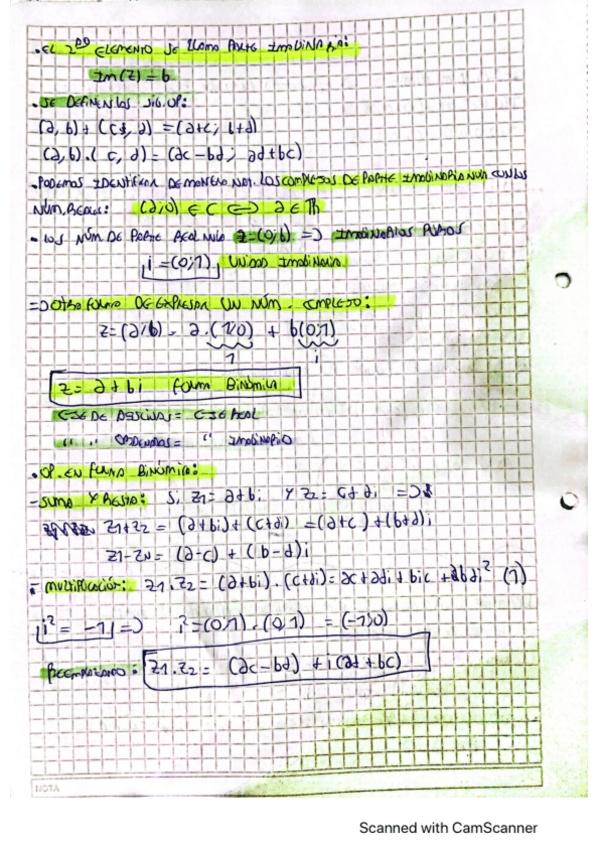 • EL 2DO ELEMENTO SE LLAMA PARTE IMAGINARIA:
Im(z) = b
• SE DEFINEN LOS SIG. OP:
(a, b) + (c, d) = (a+c; b+d)
(a, b) . (c, d) = (ac - bd; ad + bc)
• PODEMOS IDENTIFICAR DE MANERA NAT. LOS COMPLEJOS DE PARTE IMAGINARIA NULA CON LOS
NÚM. REALES: (a;0) ∈ C <=> a ∈ R
• LOS NÚM. DE PARTE REAL NULA z = (0;b) => IMAGINARIOS PUROS
i = (0;1) UNIDAD IMAGINARIA
=> OTRA FORMA DE EXPRESAR UN NÚM. COMPLEJO:
z = (a;b) = a.(1;0) + b(0;1)
1 i
z = a + bi FORMA BINÓMICA
EJE DE ABSCISAS = EJE REAL
" " ORDENADAS = " IMAGINARIO
• OP. EN FORMA BINÓMICA:
- SUMA Y RESTA: Si z1 = a+bi Y z2 = c+di =>
z1+z2 = (a+bi)+(c+di) = (a+c)+(b+d)i
z1-z2 = (a-c) + (b-d)i
- MULTIPLICACIÓN: z1.z2 = (a+bi).(c+di) = ac+adi+bic+bdi² (1)
i² = -1 => i² = (0;1).(0;1) = (-1;0)
REEMPLAZANDO: z1.z2 = (ac-bd) + i(ad+bc)
NOTA
Scanned with CamScanner